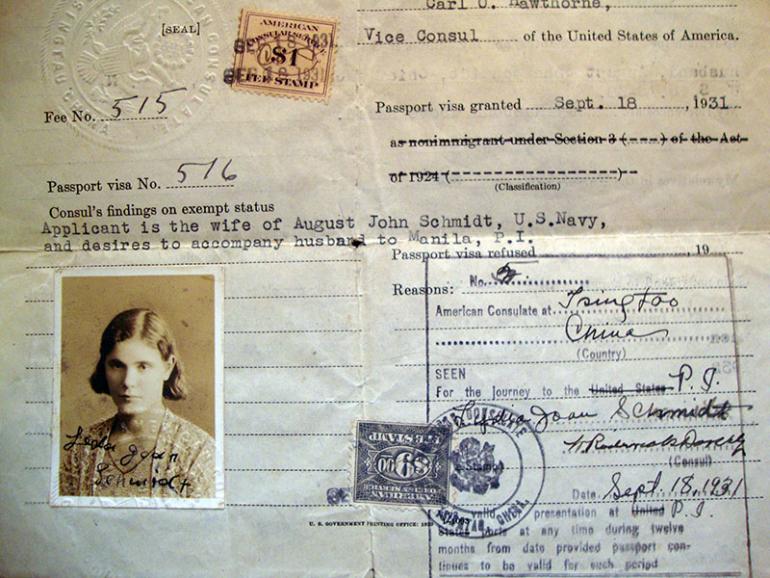 Carl O. Hawthorne,
[SEAL]
Vice Consul of the United States of America.
AMERICAN
CONSULAR SERVICE
$1
FEE STAMP
SEP 18 1931
SEP 18 1931
Fee No. 515
Passport visa granted Sept. 18, 1931
as nonimmigrant under Section 3 (---) of the Act
of 1924 (--------------------)
(Classification)
Passport visa No. 516
Consul's findings on exempt status
Applicant is the wife of August John Schmidt, U.S.Navy,
and desires to accompany husband to Manila, P.I.
Passport visa refused , 19
Reasons:
No.
American Consulate at Tsingtao
China
(Country)
SEEN
For the Journey to the United States P.I.
Lydia Joan Schmidt
(Consul)
Date Sept. 18, 1931
valid presentation at United P.I.
States ports at any time during twelve
months from date provided passport con-
tinues to be valid for such period
Joan
Schmidt
$1.00
FEE STAMP
U. S. GOVERNMENT PRINTING OFFICE: